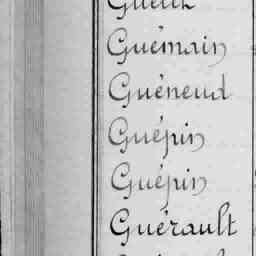 Guémain
Guéneud
Guépin
Guépin
Guérault